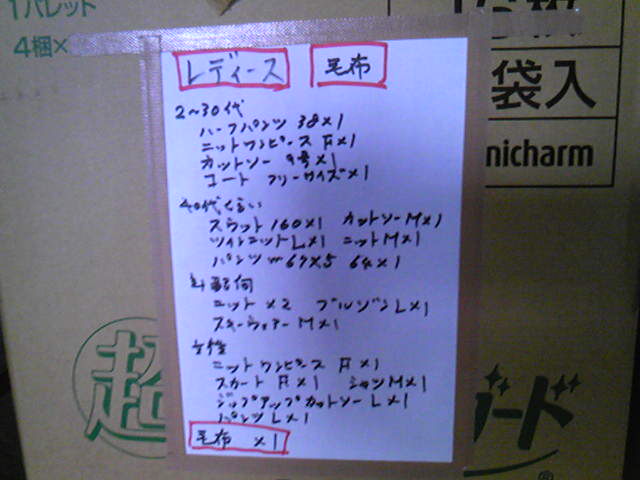 1パレット
4梱×
袋入
nicharm
レディース 毛布
2～30代
ハーフパンツ 38×1
ニットワンピース F×1
カットソー 9号×1
コート フリーサイズ×1
40代くらい
スラット 160×1 カットソーM×1
ツインニットL×1 ニットM×1
パンツ W67×5 64×1
年配向
ニット ×2 ブルゾンL×1
スキーウェアー M×1
女性
ニットワンピース F×1
スカート F×1 シャツM×1
ジップアップカットソーL×1
パンツL×1
毛布 ×1
超
ード
®